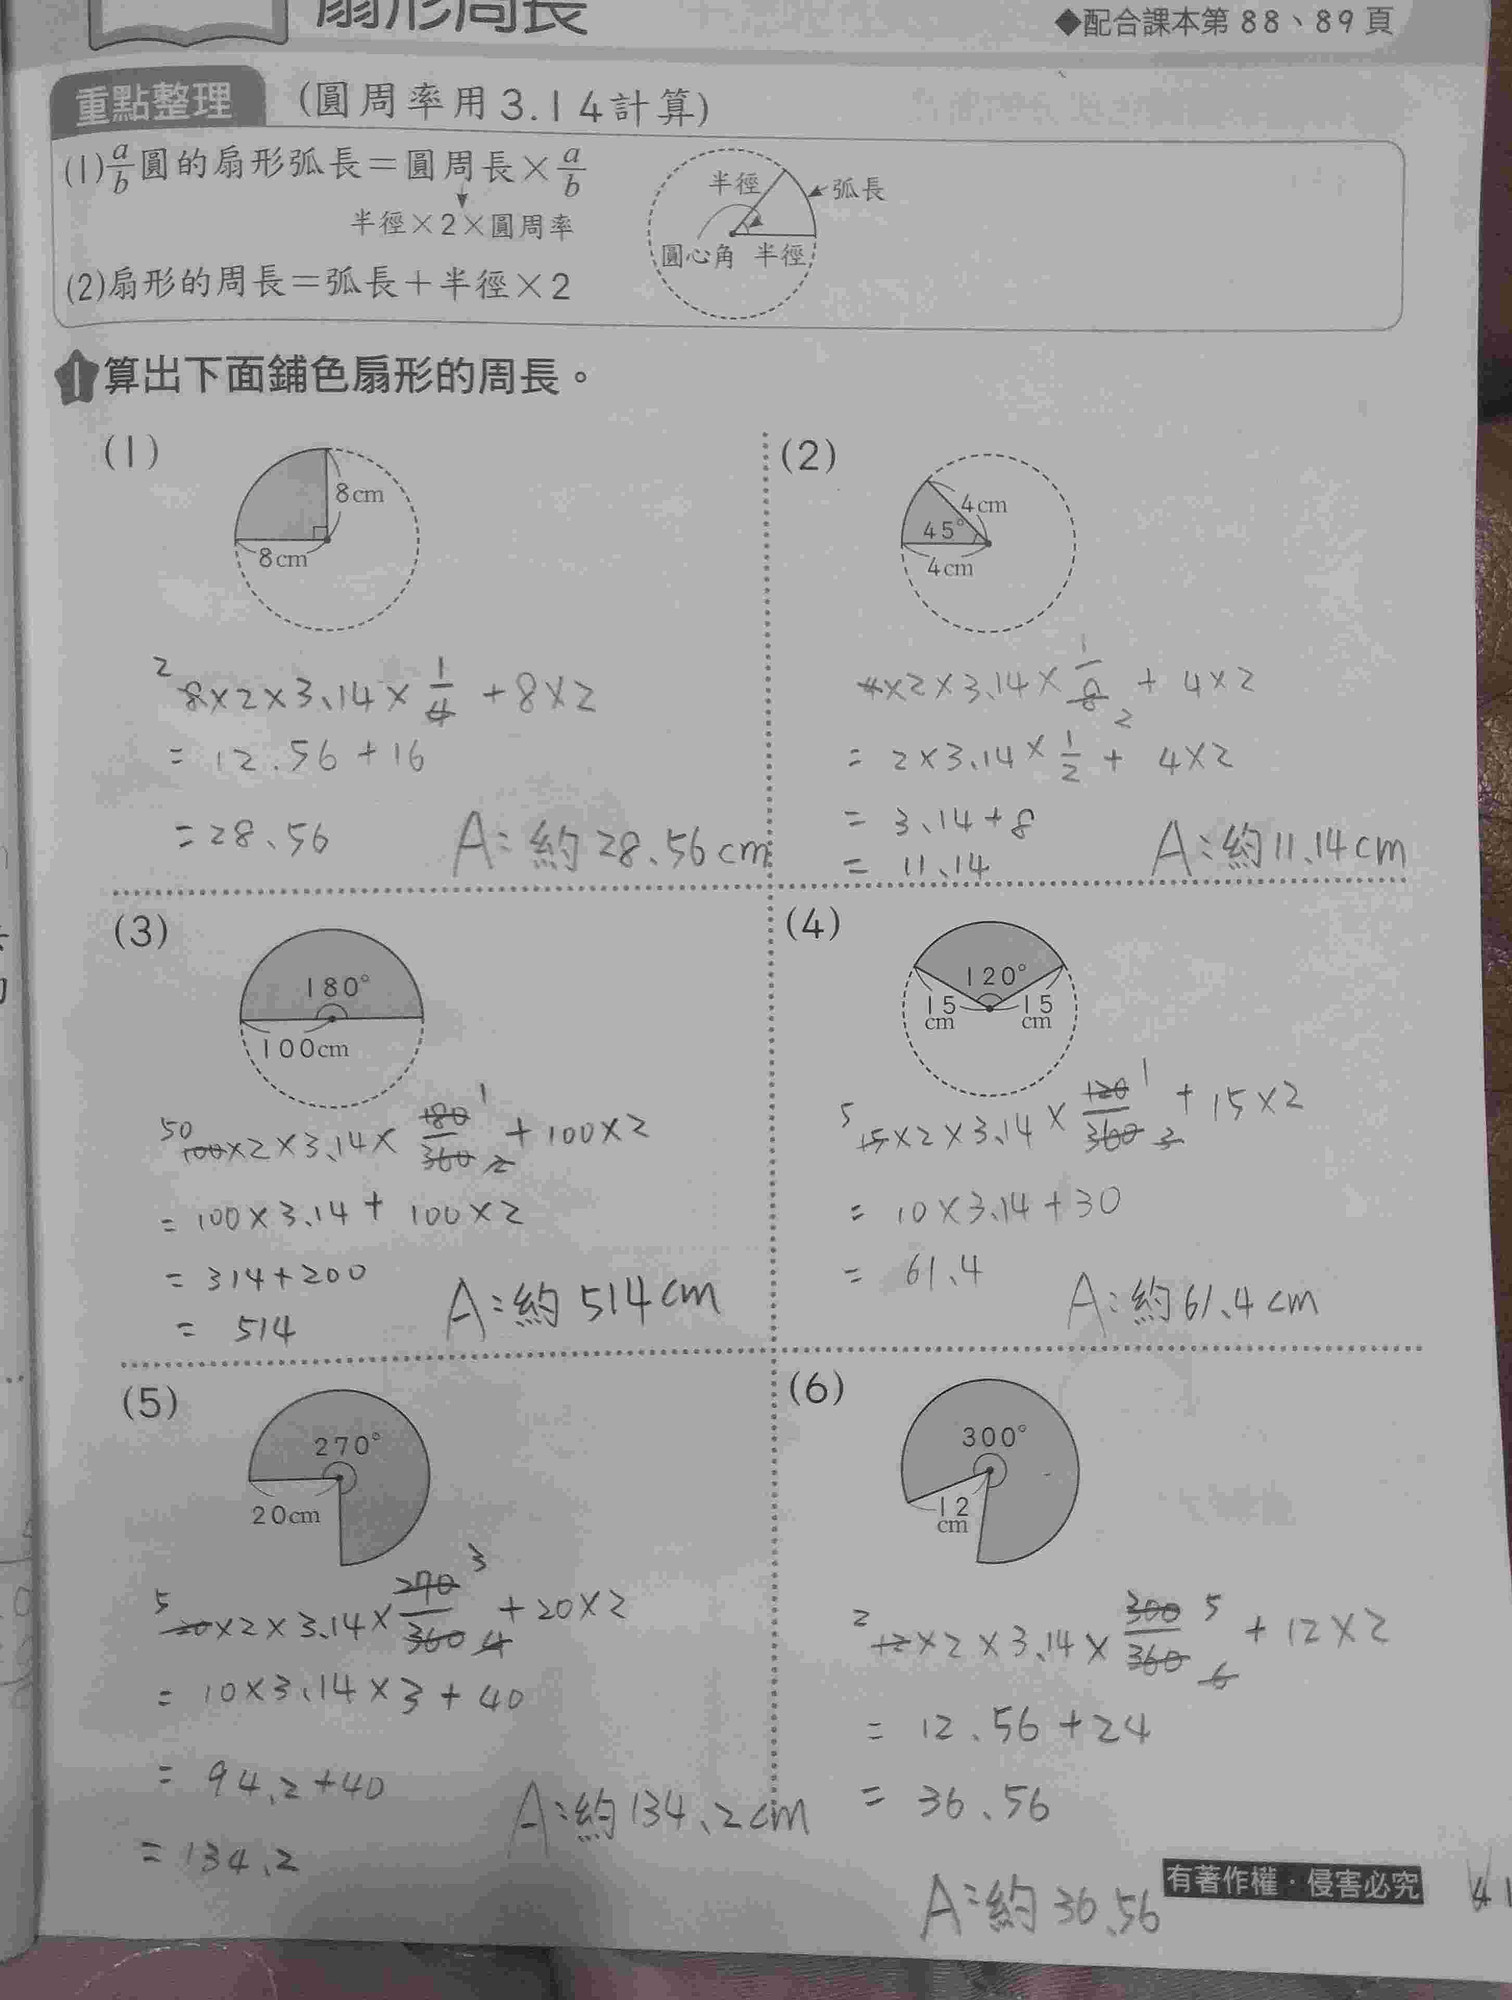 扇形周長
◆配合課本第88、89頁
重點整理 (圓周率用3.14計算)
(1) a/b 圓的扇形弧長＝圓周長× a/b
半徑×2×圓周率
(2)扇形的周長＝弧長＋半徑×2
半徑
弧長
圓心角 半徑
1 算出下面鋪色扇形的周長。
(1)
8cm
8cm
2
8×2×3.14× 1/4 +8×2
= 12.56+16
=28.56
A:約28.56cm
(2)
4cm
45°
4cm
4×2×3.14× 1/8 + 4×2
2
= 2×3.14× 1/2 + 4×2
= 3.14+8
= 11.14
A:約11.14cm
(3)
180°
100cm
50 1
100×2×3.14× 180/360 +100×2
2
= 100×3.14+ 100×2
= 314+200
= 514
A:約514cm
(4)
120°
15 15
cm cm
5 1
15×2×3.14× 120/360 +15×2
3
= 10×3.14+30
= 61.4
A:約61.4cm
(5)
270°
20cm
5 3
20×2×3.14× 270/360 +20×2
4
= 10×3.14×3+40
= 94.2+40
= 134.2
A:約134.2cm
(6)
300°
12
cm
2 5
12×2×3.14× 300/360 + 12×2
6
= 12.56+24
= 36.56
A:約36.56
有著作權·侵害必究
41